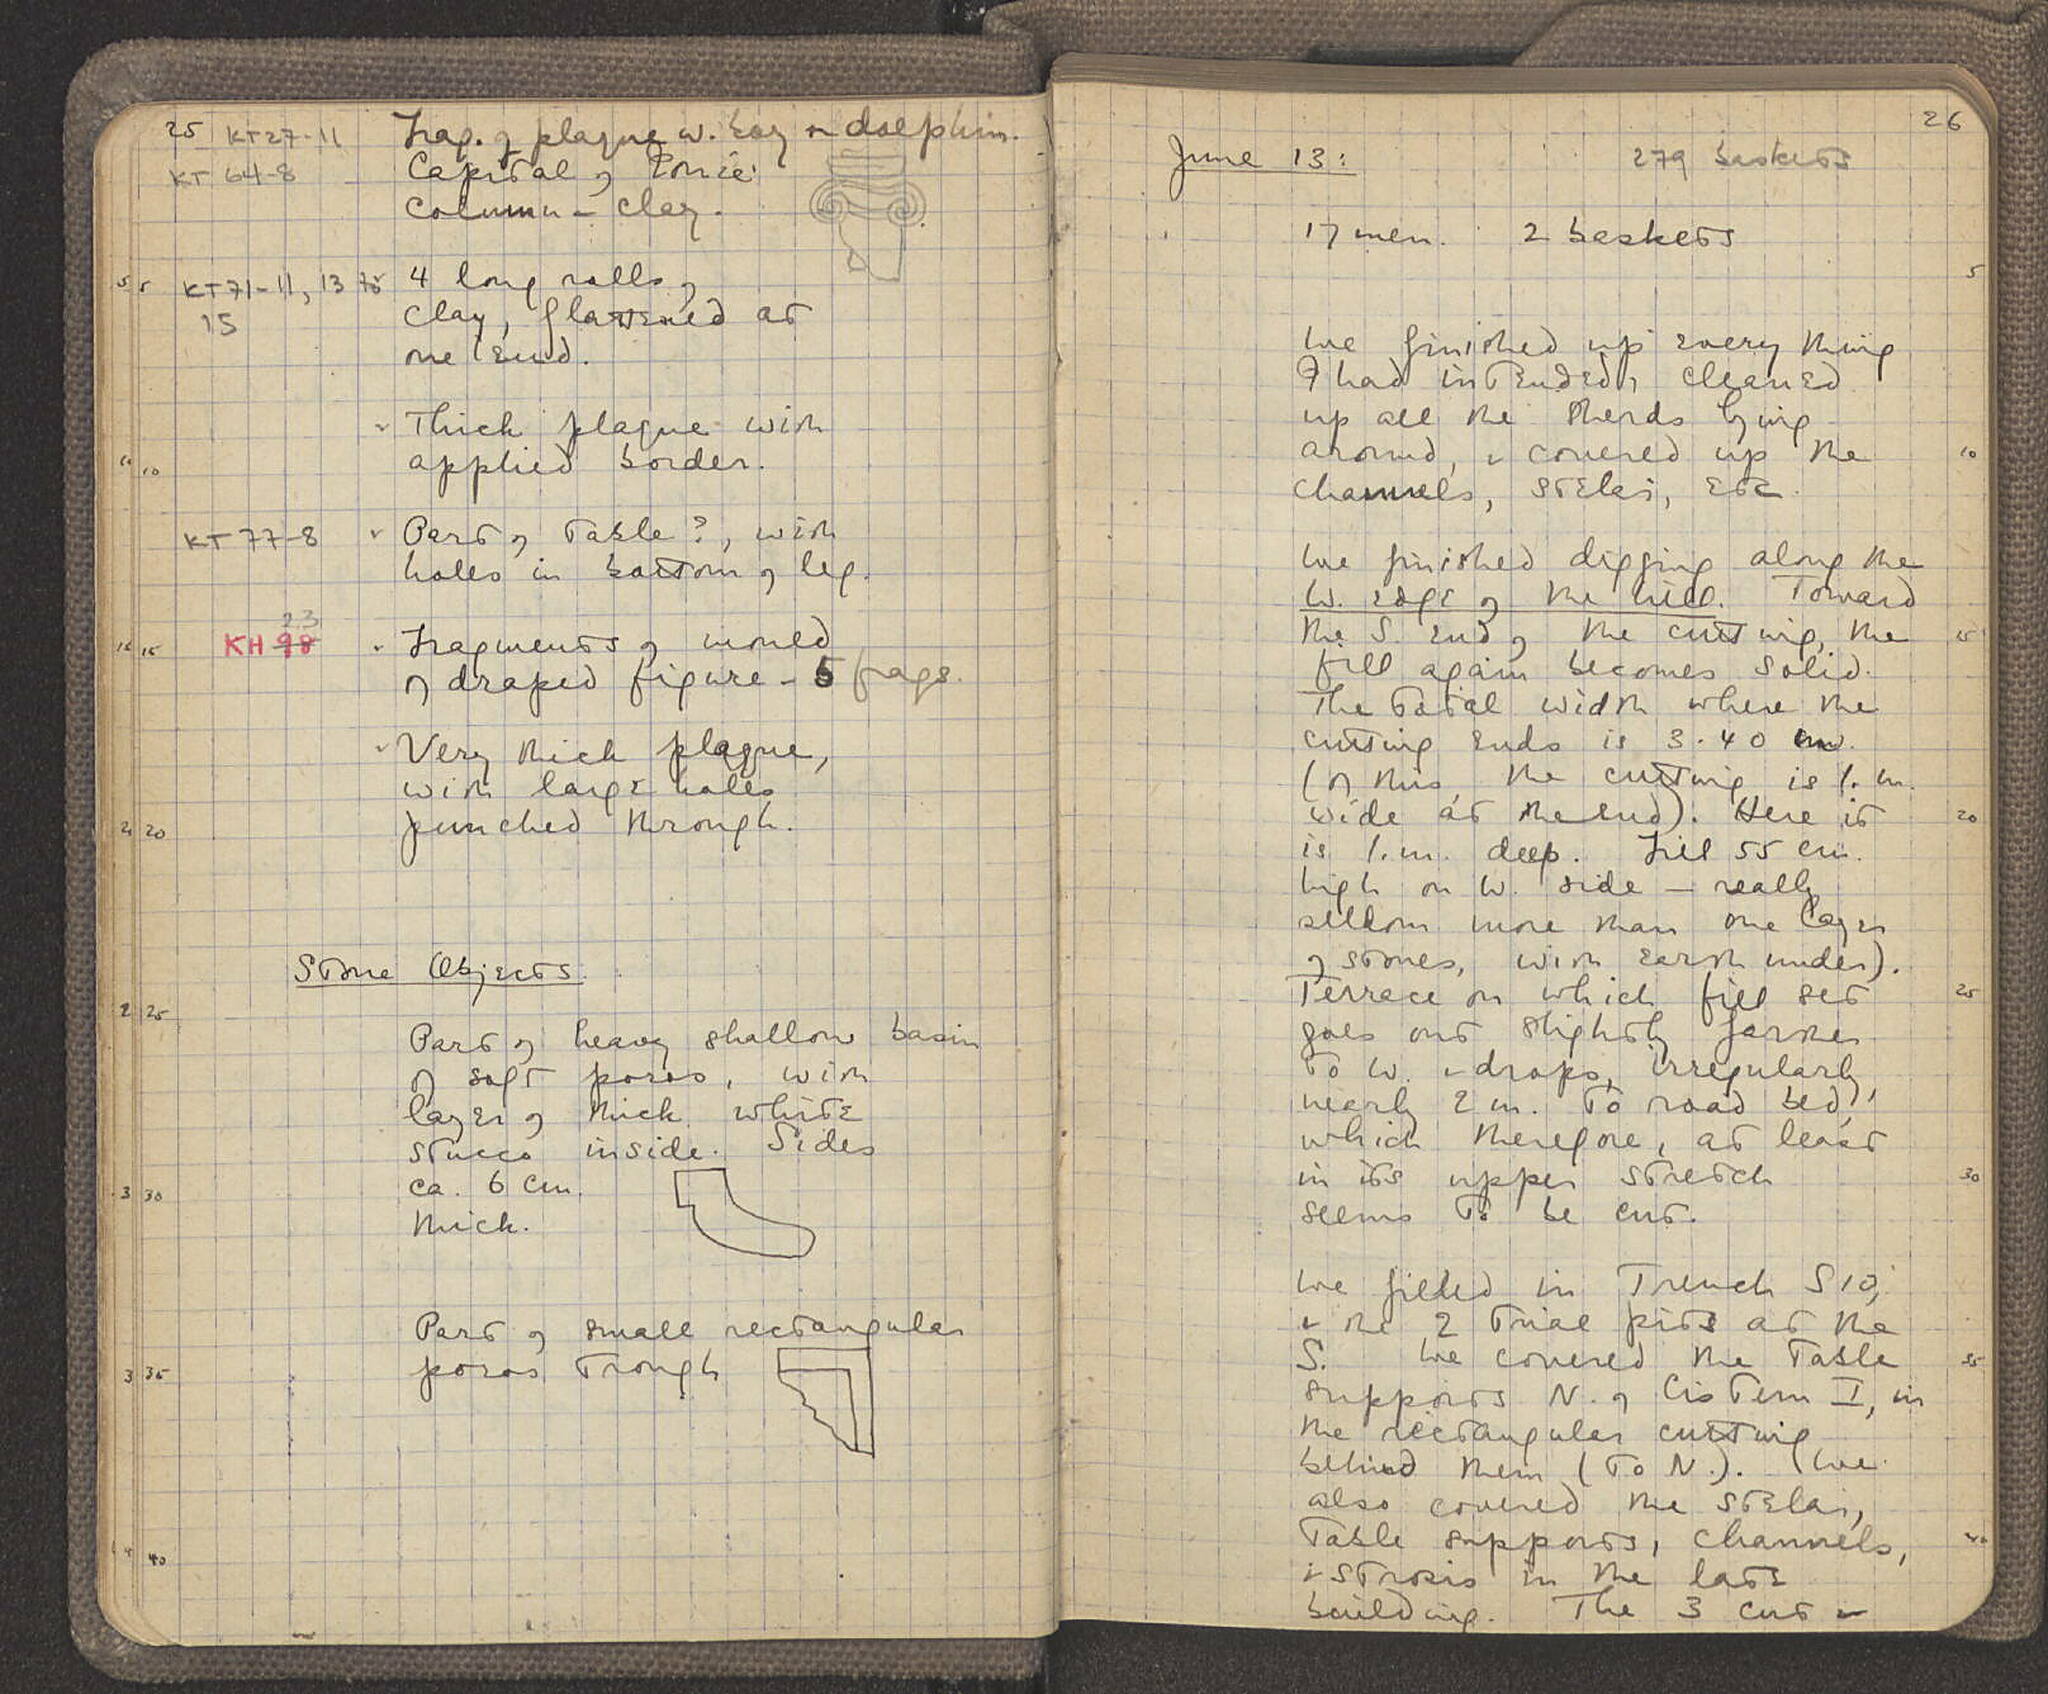 25 KT27-11 Frag. of plaque w. boy on dolphin.
KT 64-8 Capital of Ionic
column - clay.
5 5 KT71-11, 13 to 4 long rolls of
15 clay, flattened at
one end.
Thick plaque with
10 applied border.
KT 77-8 Part of table?, with
holes in bottom of leg.
23
15 KH 98 Fragments of mould
of draped figure - 5 frags.
Very thick plaque,
with large holes
2 20 punched through.
Stone Objects.
2 25
Part of heavy shallow basin
of soft poros, with
layer of thick white
stucco inside. Sides
3 30 ca. 6 cm.
thick.
Part of small rectangular
3 35 poros trough
4 40
26
June 13: 279 baskets
17 men. 2 baskets
5
We finished up everything
I had intended, cleaned
up all the sherds lying
around, & covered up the 10
channels, stelai, etc.
We finished digging along the
W. edge of the hill. Toward
the S. end of the cutting, the 15
fill again becomes solid.
The total width where the
cutting ends is 3.40 m.
(of this, the cutting is 1. m.
wide at the end). Here it 20
is 1. m. deep. Fill 55 cm.
high on W. side - really
seldom more than one layer
of stones, with earth under).
Terrace on which fill set 25
goes out slightly farther
to W. & drops, irregularly,
nearly 2 m. to road bed,
which therefore, at least
in its upper stretch 30
seems to be cut.
We filled in Trench S 10,
& the 2 trial pits at the
S. We covered the table 35
supports N. of Cistern I, in
the rectangular cutting
behind them (to N.). We
also covered the stelai,
table supports, channels, 40
& strosis in the late
building. The 3 cut &